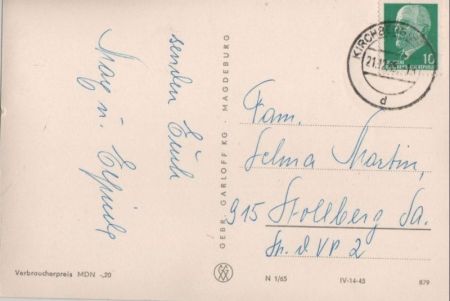 senden Euch
Max u. Elfriede
GEBR. GARLOFF KG · MAGDEBURG
KIRCHBERG
21.12.
d
10
Fam.
Selma Martin,
915 Stollberg Sa.
Str. d VP 2
Verbraucherpreis MDN -,20
N 1/65
IV-14-45
879